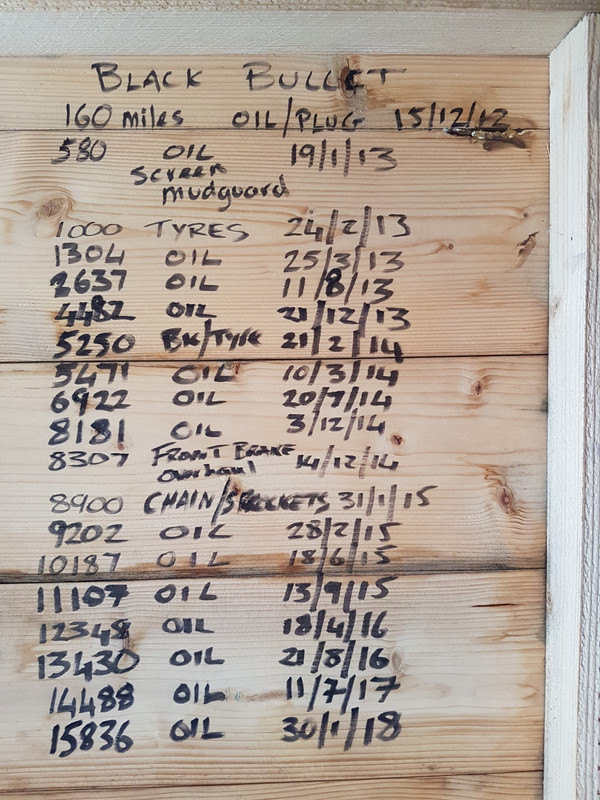 BLACK BULLET
160 miles OIL/PLUG 15/12/12
580 OIL 19/1/13
screen
mudguard
1000 TYRES 24/2/13
1304 OIL 25/3/13
2637 OIL 11/8/13
4482 OIL 21/12/13
5250 BK/TYRE 21/2/14
5471 OIL 10/3/14
6922 OIL 20/7/14
8181 OIL 3/12/14
8307 FRONT BRAKE 14/12/14
overhaul
8900 CHAIN/SPROCKETS 31/1/15
9202 OIL 28/2/15
10187 OIL 18/6/15
11107 OIL 13/9/15
12348 OIL 18/4/16
13430 OIL 21/8/16
14488 OIL 11/7/17
15836 OIL 30/1/18